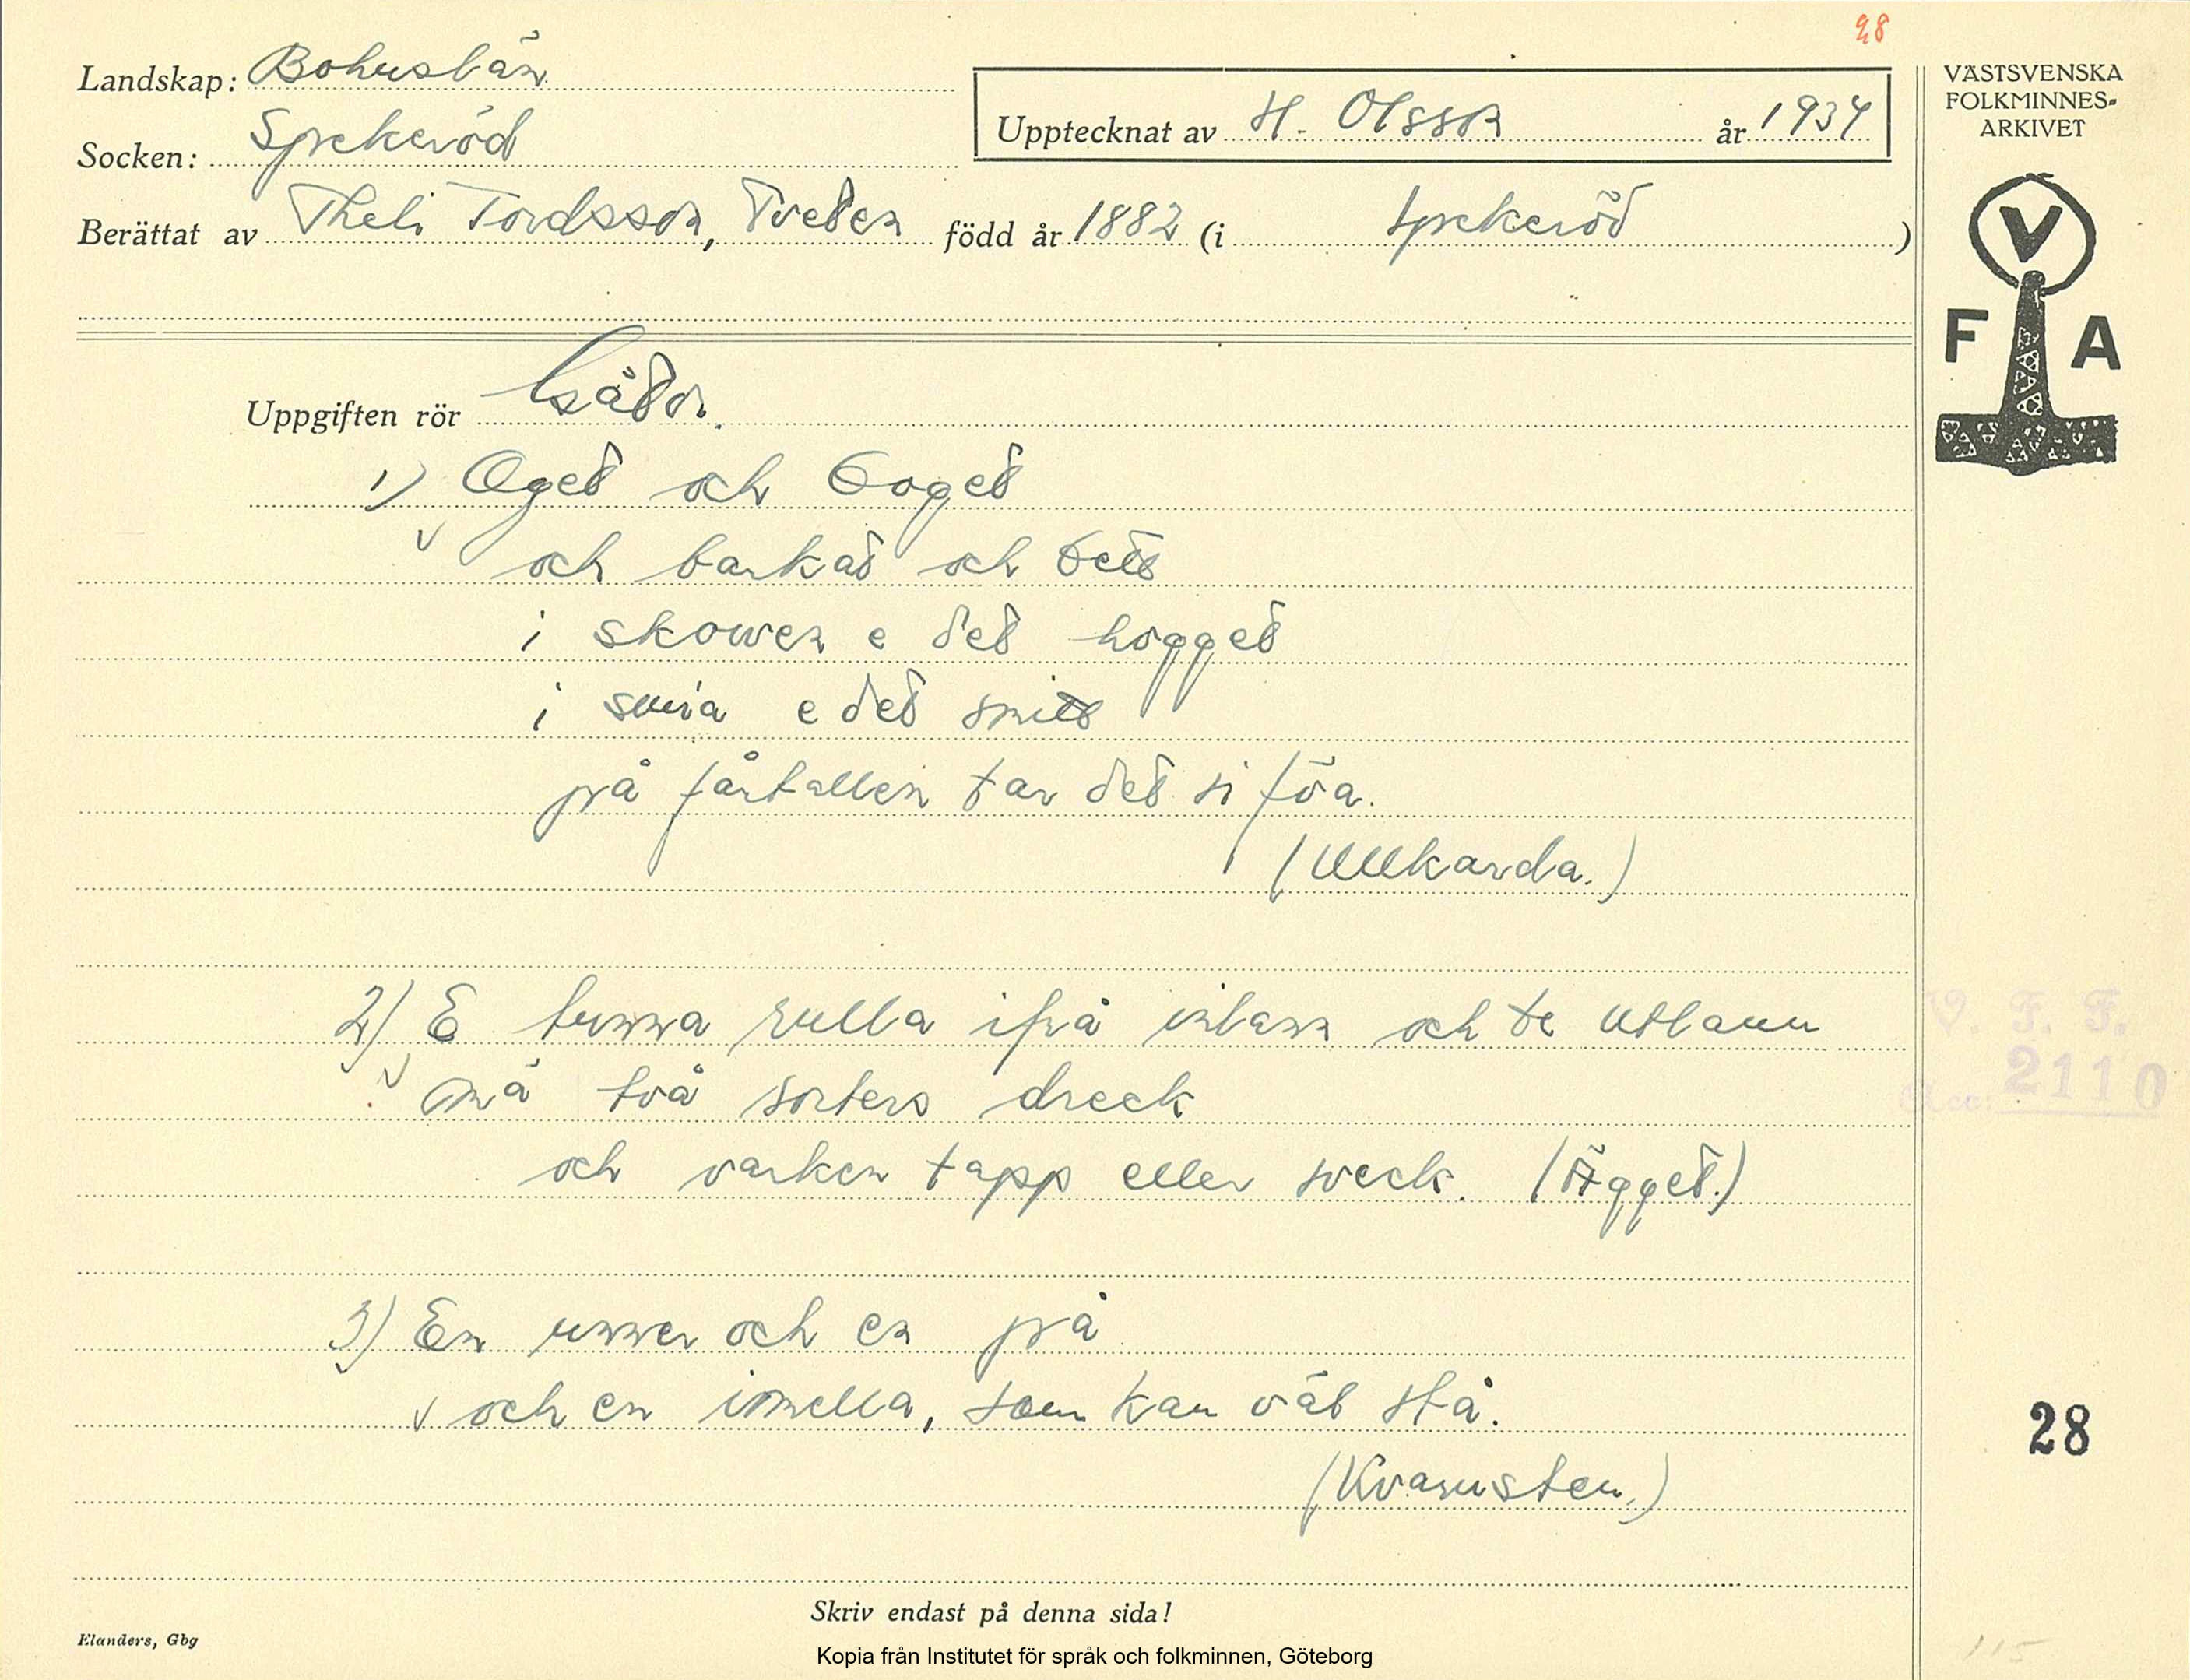 28
Landskap: Bohuslän
Socken: Spekeröd
Upptecknat av H. Olsson år 1934
Berättat av Theli Tordsson, Tveten född år 1882 (i Spekeröd)
VÄSTSVENSKA
FOLKMINNES-
ARKIVET
V
F A
Uppgiften rör Gåtor.
1) Öget och böget
och barkat och bett
i skowen e det hogget
i smia e det smitt
på fårfallen tar det si föa.
(Ullkarda.)
2) E tunna rulla ifrå inlann och te utlann
mä två sorters dreck
och varken tapp eller sveck. (Ägget.)
3) En unner och en på
och en imella, som kan väl stå.
(Kvarnsten.)
V. F. F.
Acc: 2110
28
115
Skriv endast på denna sida!
Elanders, Gbg
Kopia från Institutet för språk och folkminnen, Göteborg